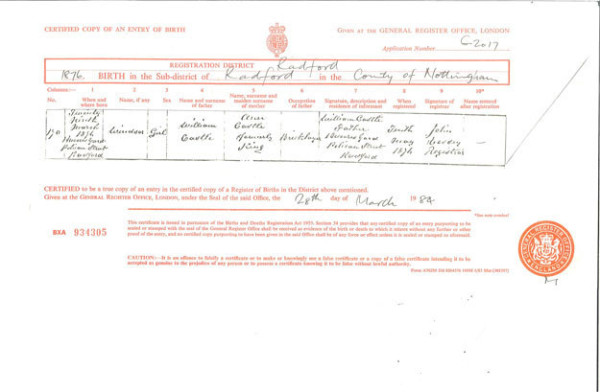 CERTIFIED COPY OF AN ENTRY OF BIRTH
GIVEN AT THE GENERAL REGISTER OFFICE, LONDON
Application Number C 2017
REGISTRATION DISTRICT Radford
1876. BIRTH in the Sub-district of Radford in the County of Nottingham
Columns:— 1 2 3 4 5 6 7 8 9 10*
No. When and where born Name, if any Sex Name and surname of father Name, surname and maiden surname of mother Occupation of father Signature, description and residence of informant When registered Signature of registrar Name entered after registration
170 Twenty Ninth March 1876 Pelican Street Radford
Girl
William Castle
Castle formerly King
Bricklayer
William Castle Father Pelican Street Radford
Tenth May 1876
John Registrar
—
CERTIFIED to be a true copy of an entry in the certified copy of a Register of Births in the District above mentioned.
Given at the GENERAL REGISTER OFFICE, LONDON, under the Seal of the said Office, the 20th day of March 1984
BXA 934305
This certificate is issued in pursuance of the Births and Deaths Registration Act 1953. Section 34 provides that any certified copy of an entry purporting to be
sealed or stamped with the seal of the General Register Office shall be received as evidence of the birth or death to which it relates without any further or other
proof of the entry, and no certified copy purporting to have been given in the said Office shall be of any force or effect unless it is sealed or stamped as aforesaid.
CAUTION:—It is an offence to falsify a certificate or to make or knowingly use a false certificate or a copy of a false certificate intending it to be
accepted as genuine to the prejudice of any person or to possess a certificate knowing it to be false without lawful authority.
GENERAL REGISTER OFFICE ENGLAND